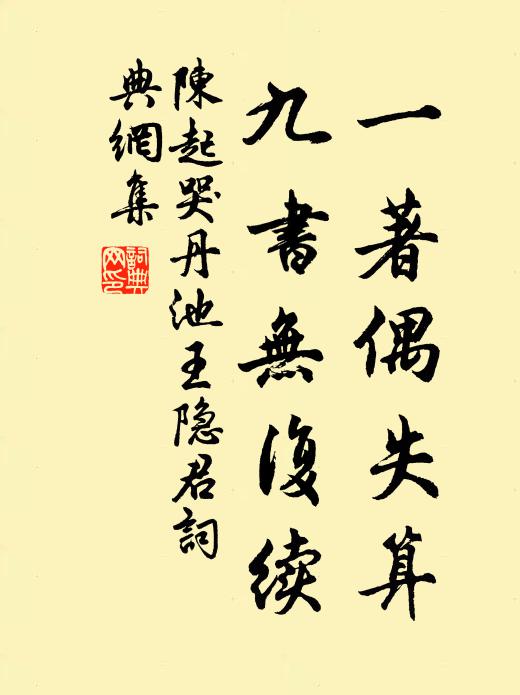 一著偶失算
九書無復续
陳起哭丹池王隐君詞
典網集
詞典網印